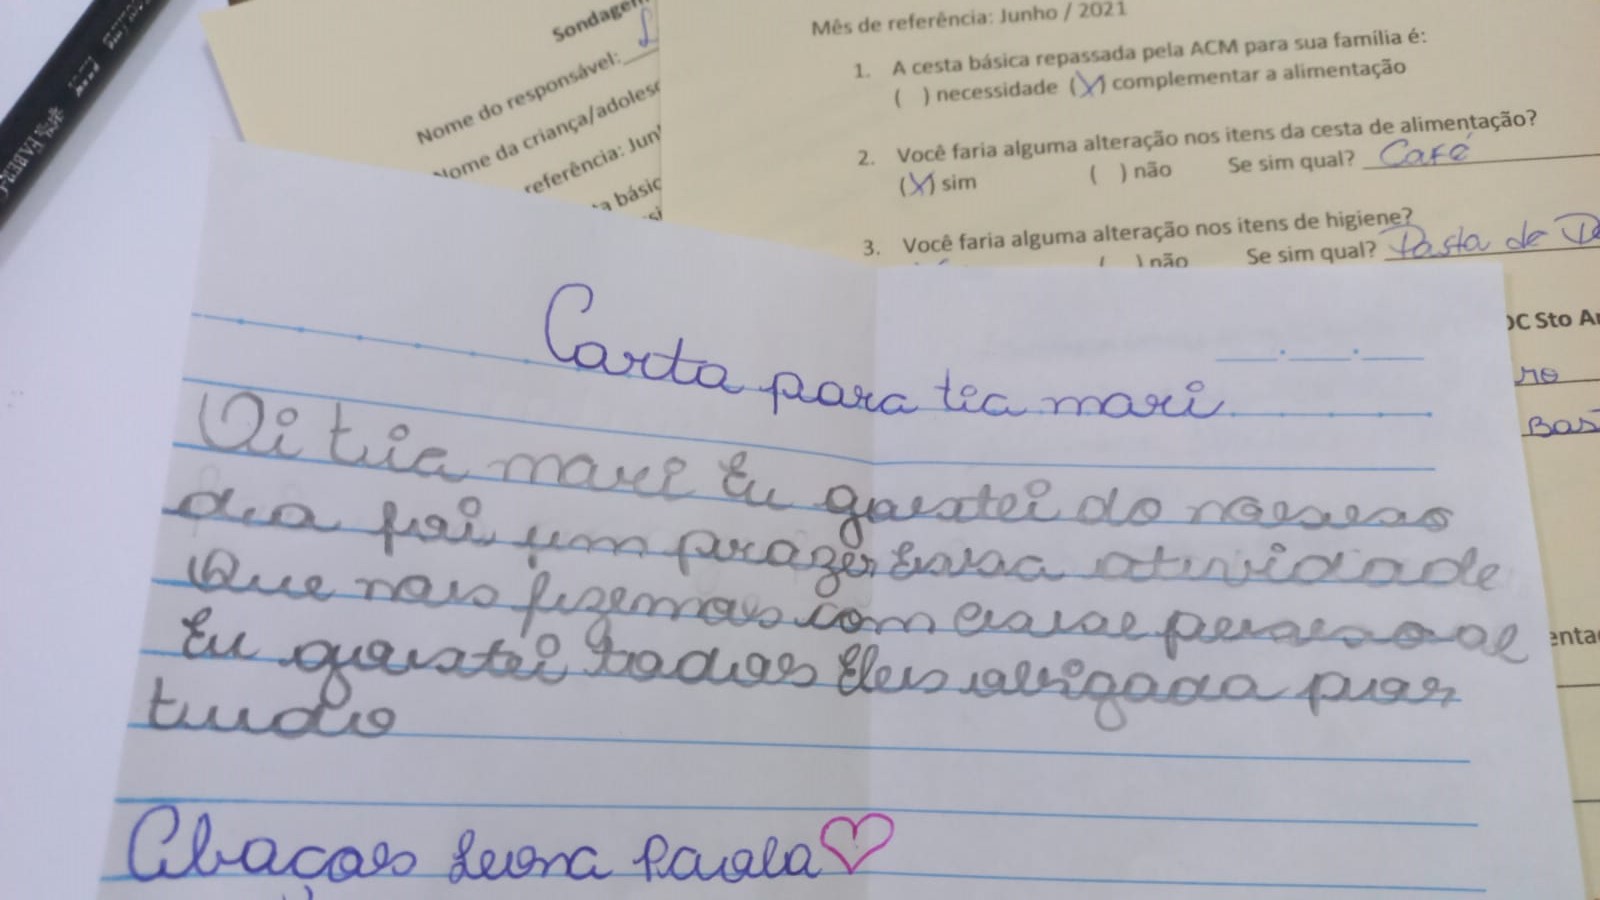 FABER
Sondagem
Nome do responsável:
Nome da criança/adolesc
referência: Jun
a básic
Mês de referência: Junho / 2021
1. A cesta básica repassada pela ACM para sua família é:
( ) necessidade (X) complementar a alimentação
2. Você faria alguma alteração nos itens da cesta de alimentação?
(X) sim ( ) não Se sim qual? Café
3. Você faria alguma alteração nos itens de higiene?
( ) não Se sim qual? Pasta de De
OC Sto An
ro
Bas
enta
Carta para tia mari
Oi tia mari Eu gostei do nosso
dia foi um prazer Essa atividade
Que nos fizemos com esse pessoal
Eu gostei todos Eles obrigada por
tudo
Abaços Leona Paola